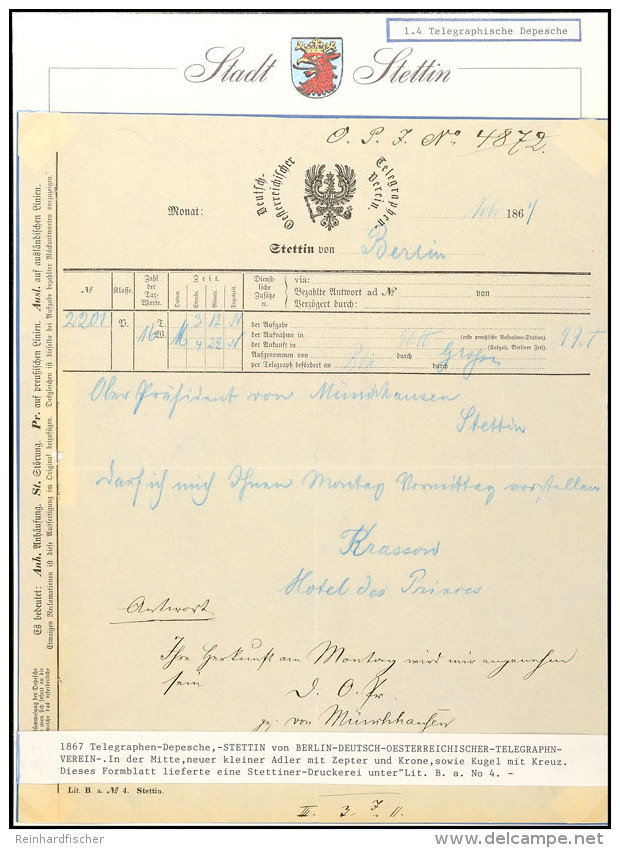 1.4 Telegraphische Depesche
Stadt Stettin
O. P. J. No 4872.
Deutsch-Oesterreichischer Telegraphen-Verein.
Monat: 1867
Stettin von Berlin
№ Klasse. Zahl der Tax-Worte. Datum. Zeit. Stunde. Minut. Tageszeit. Dienstliche Zusätze ꝛc.
via:
Bezahlte Antwort ad № von
Verzögert durch:
2201 P. 16 T. W. 16 3 12 N
4 22 N
der Aufgabe
der Aufnahme in (erste preußische Aufnahme-Station).
der Ankunft (Ortszeit, Berliner Zeit).
Aufgenommen von durch
per Telegraph befördert an durch
Ober Präsident von Münchhausen
Stettin
Darf ich mich Ihnen Montag Vormittag vorstellen
Krassow
Hotel des Princes
Antwort.
Ihre Herkunft am Montag wird mir angenehm
sein
D. O. Pr.
gz. von Münchhausen
Es bedeutet: Anh. Anhäufung. St. Störung. Pr. auf preußischen Linien. Ausl. auf ausländischen Linien.
Etwaigen Reclamationen ist diese Ausfertigung im Original beizufügen. Desgleichen ist dieselbe bei Aufgabe bezahlter Rückantworten vorzuzeigen.
1867 Telegraphen-Depesche,-STETTIN von BERLIN-DEUTSCH-OESTERREICHISCHER-TELEGRAPHN-
VEREIN-.In der Mitte,neuer kleiner Adler mit Zepter und Krone,sowie Kugel mit Kreuz.
Dieses Formblatt lieferte eine Stettiner-Druckerei unter"Lit. B. a. No 4. -
Lit. B. a. № 4. Stettin.
Reinhardfischer
delcampe.net